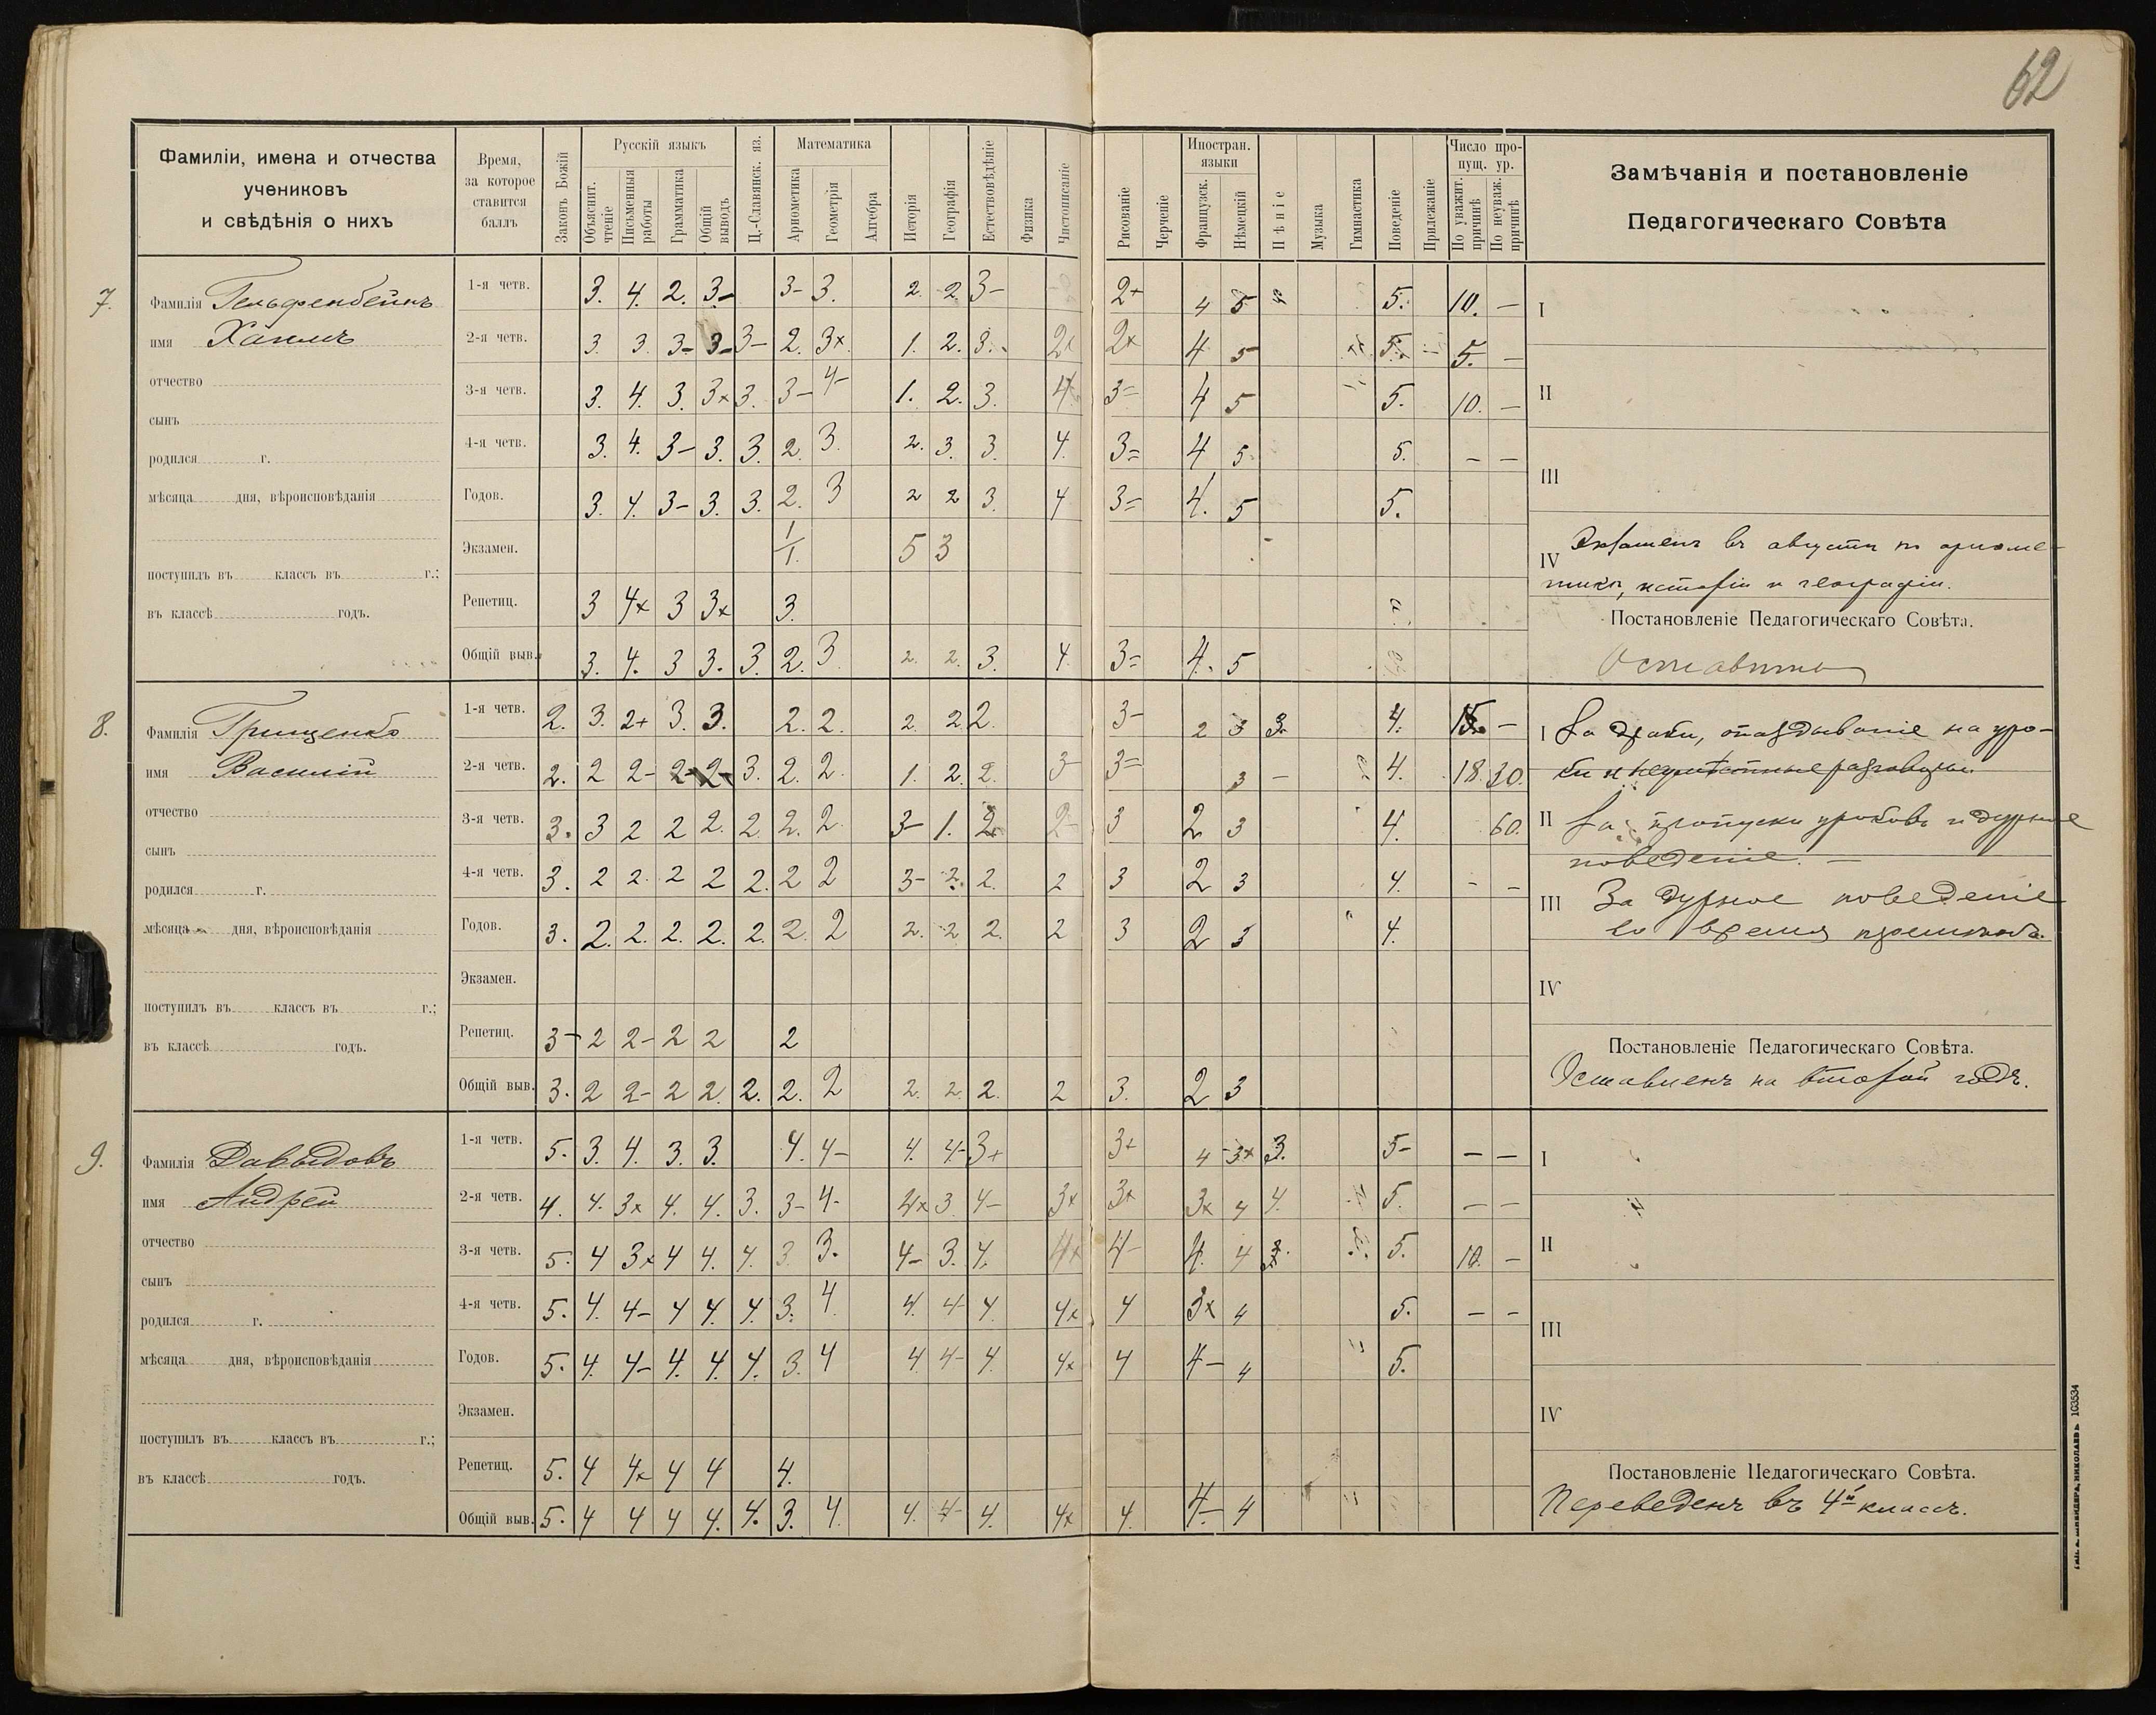 62
Фамиліи, имена и отчества
учениковъ
и свѣдѣнія о нихъ
Время,
за которое
ставится
баллъ
Законъ Божій
Русскій языкъ
Объяснит.
чтеніе
Письменныя
работы
Грамматика
Общій
выводъ
Ц.-Славянск. яз.
Математика
Ариѳметика
Геометрія
Алгебра
Исторія
Географія
Естествовѣдѣніе
Физика
Чистописаніе
Рисованіе
Черченіе
Иностран.
языки
Французск.
Нѣмецкій
Пѣніе
Музыка
Гимнастика
Поведеніе
Прилежаніе
Число про-
пущ. ур.
По уважит.
причинѣ
По неуваж.
причинѣ
Замѣчанія и постановленіе
Педагогическаго Совѣта
7.
Фамилія Гельфенбейнъ
имя
отчество
сынъ
родился г.
мѣсяца дня, вѣроисповѣданія
поступилъ въ классъ въ г.;
въ классѣ годъ.
1-я четв. 3. 4. 2. 3- 3- 3. 2. 2. 3- 2+ 4 5 5. 10. —
2-я четв. 3. 3. 3- 3- 3- 2. 3x 1. 2. 3. 2x 2x 4 5 5. 5. —
3-я четв. 3. 4. 3. 3x 3. 3- 4- 1. 2. 3. 4 3= 4 5 5. 10. —
4-я четв. 3. 4. 3- 3. 3. 2. 3. 2. 3. 3. 4. 3= 4 5 5. — —
Годов. 3. 4. 3- 3. 3. 2. 3 2 2 3. 4 3= 4. 5 5.
Экзамен. 1/1. 5 3
Репетиц. 3 4x 3 3x 3.
Общій выв. 3. 4. 3 3. 3. 2. 3. 2. 2. 3. 4. 3= 4. 5
I
II
III
IV Экзаменъ въ августѣ по ариѳме-
тикѣ, исторіи и географіи.
Постановленіе Педагогическаго Совѣта.
Оставить
8.
Фамилія Грищенко
имя Василій
отчество
сынъ
родился г.
мѣсяца дня, вѣроисповѣданія
поступилъ въ классъ въ г.;
въ классѣ годъ.
1-я четв. 2. 3. 2+ 3. 3. 2. 2. 2. 2 2. 3- 2 3 3. 4. 15. —
2-я четв. 2. 2 2- 2- 2- 3. 2. 2. 1. 2. 2. 3- 3= 3 — 4. 18. 30.
3-я четв. 3. 3 2 2 2. 2. 2. 2. 3- 1. 2. 2- 3 2 3 4. 60.
4-я четв. 3. 2 2. 2 2 2. 2 2 3- 2. 2. 2 3 2 3 4. - -
Годов. 3. 2. 2. 2. 2. 2. 2. 2 2. 2 2. 2 3 2 3 4.
Экзамен.
Репетиц. 3- 2 2- 2 2 2
Общій выв. 3. 2 2- 2 2. 2. 2. 2 2. 2. 2. 2 3. 2 3
I За драки, опаздываніе на уро-
ки и неумѣстные разговоры.
II За пропуски уроковъ и дурное
поведеніе. —
III За дурное поведеніе
во время
IV
Постановленіе Педагогическаго Совѣта.
Оставленъ на второй годъ.
9.
Фамилія Давыдовъ
имя Андрей
отчество
сынъ
родился г.
мѣсяца дня, вѣроисповѣданія
поступилъ въ классъ въ г.;
въ классѣ годъ.
1-я четв. 5. 3. 4. 3. 3. 4. 4- 4. 4- 3+ 3+ 4- 3x 3. 5- — —
2-я четв. 4. 4. 3x 4. 4. 3. 3- 4- 4x 3. 4- 3x 3x 3x 4 4. 5. — —
3-я четв. 5. 4 3x 4 4. 4. 3. 3. 4- 3. 4. 4x 4- 4. 4 3. 5. 10. —
4-я четв. 5. 4. 4- 4 4. 4. 3. 4. 4. 4- 4 4x 4 3x 4 5. — -
Годов. 5. 4. 4- 4. 4. 4. 3. 4 4. 4- 4. 4x 4 4- 4 5.
Экзамен.
Репетиц. 5. 4 4x 4 4 4.
Общій выв. 5. 4 4 4 4. 4. 3. 4. 4. 4- 4. 4x 4. 4- 4
I
II
III
IV
Постановленіе Педагогическаго Совѣта.
Переведенъ въ 4й классъ.